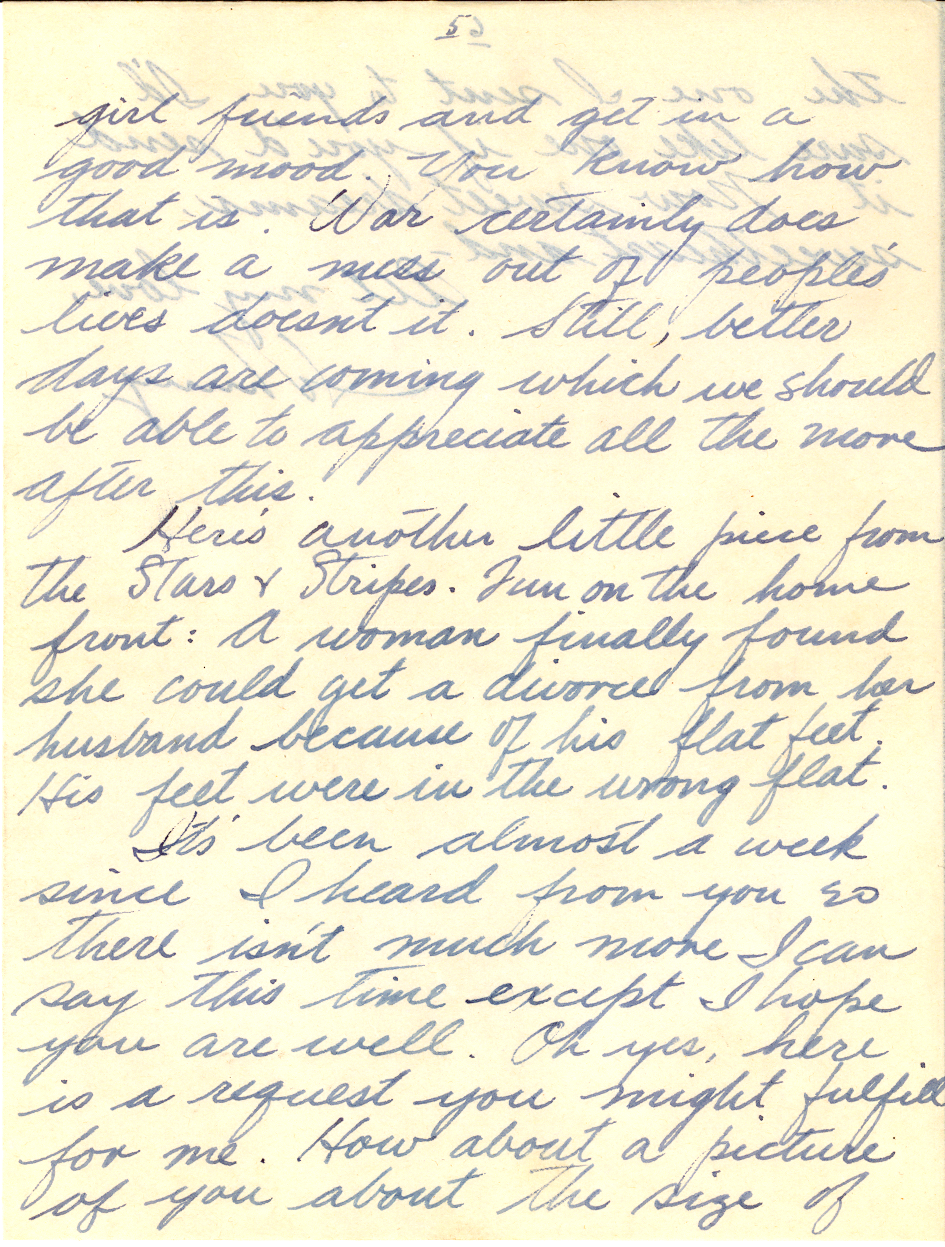 5
girl friends and get in a
good mood. You know how
that is. War certainly does
make a mess out of people's
lives doesn't it. Still, better
days are coming which we should
be able to appreciate all the more
after this.
Here's another little piece from
the Stars & Stripes. Fun on the home
front: A woman finally found
she could get a divorce from her
husband because of his flat feet.
His feet were in the wrong flat.
It's been almost a week
since I heard from you so
there isn't much more I can
say this time except I hope
you are well. Oh yes, here
is a request you might fulfill
for me. How about a picture
of you about the size of